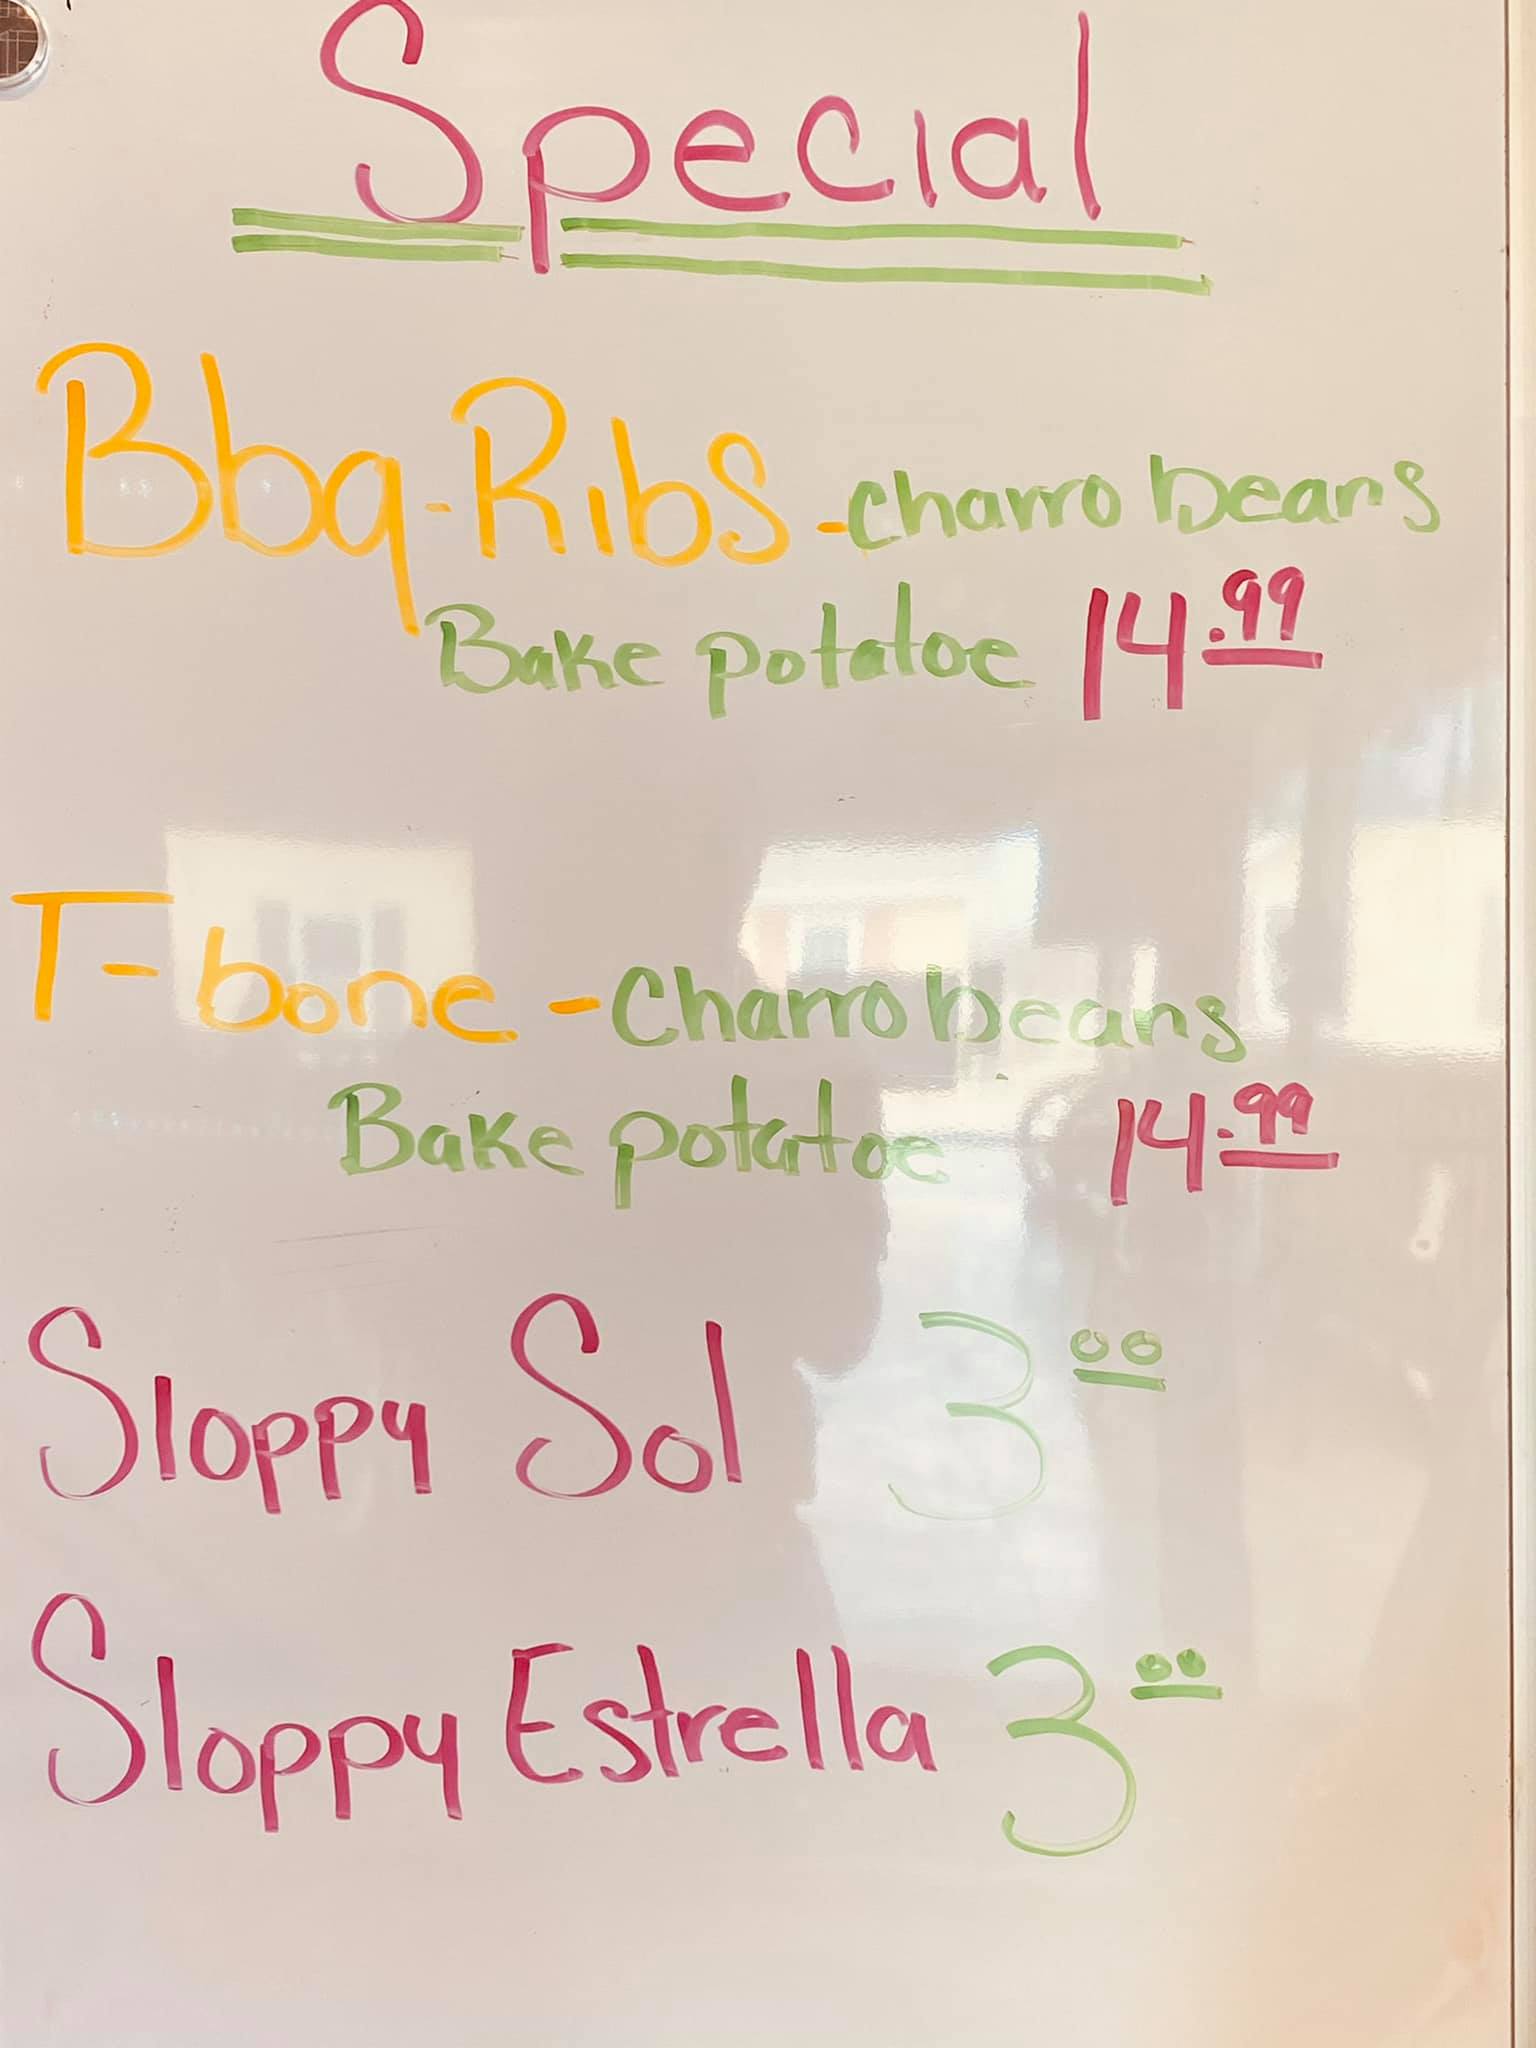 Special
Bbq-Ribs-charro beans
Bake potatoe 14.99
T-bone - Charro beans
Bake potatoe 14.99
Sloppy Sol 3 00
Sloppy Estrella 3 00